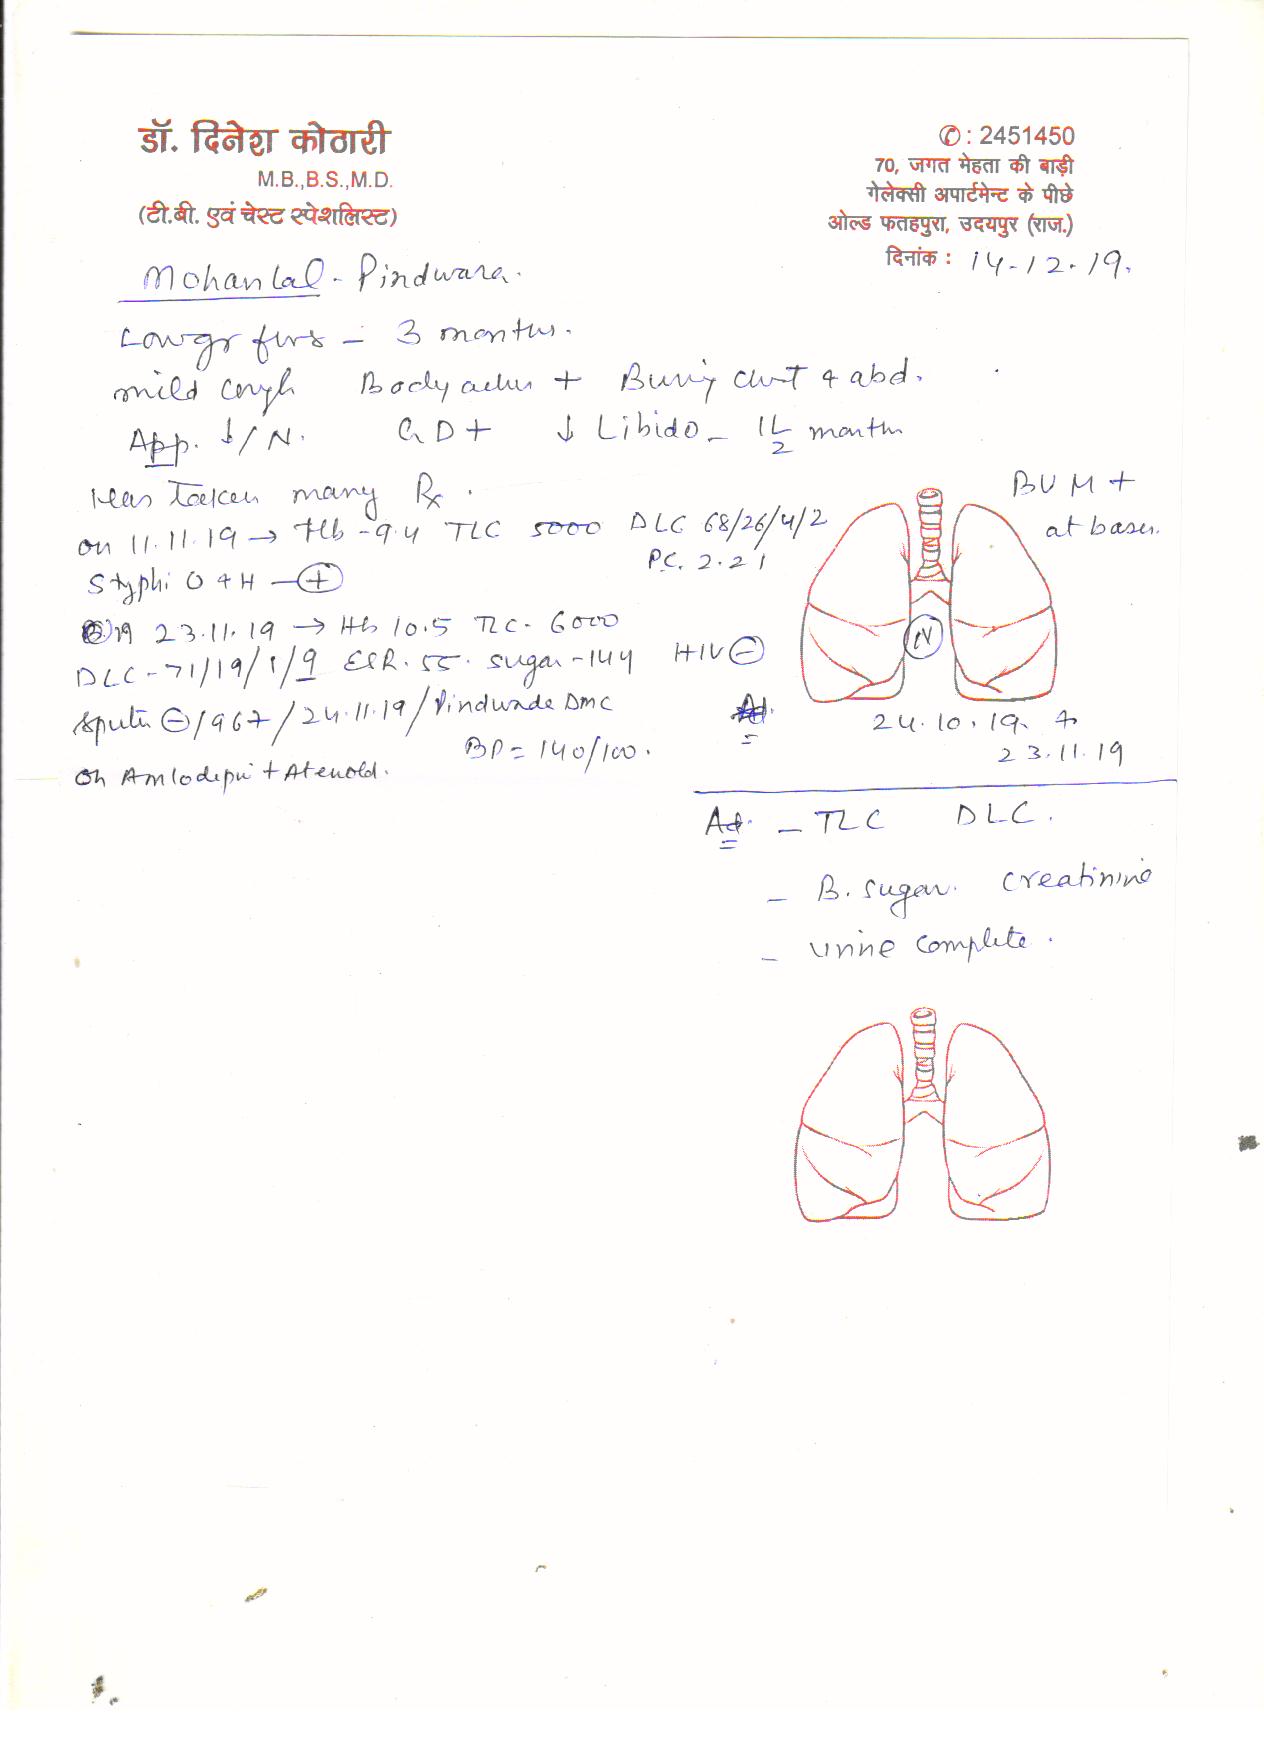 डॉ. दिनेश कोठारी
M.B.,B.S.,M.D.
(टी.बी. एवं चेस्ट स्पेशलिस्ट)
✆ : 2451450
70, जगत मेहता की बाड़ी
गेलेक्सी अपार्टमेन्ट के पीछे
ओल्ड फतहपुरा, उदयपुर (राज.)
दिनांक : 14.12.19.
Mohanlal - Pindwara.
Lowgr fevs - 3 months.
mild cough Body aches + Burnig chest & abd.
App. ↓/N. GD+ ↓ Libido - 1 1/2 month
Has Taken many Rx.
on 11.11.19 → Hb - 9.4 TLC 5000 DLC 68/26/4/2
P.C. 2.21
Styphi O & H - ⊕
23.11.19 → Hb 10.5 TLC - 6000
DLC - 71/19/1/9 ESR. 55. sugar - 144 HIV ⊖
Sputm ⊖/967/24.11.19/Pindwade DMC
BP = 140/100.
On Amlodipin + Atenold.
BVM +
at bases.
N
24.10.19. &
23.11.19
Ad. - TLC DLC.
- B. sugar. creatinine
- Urine complete.